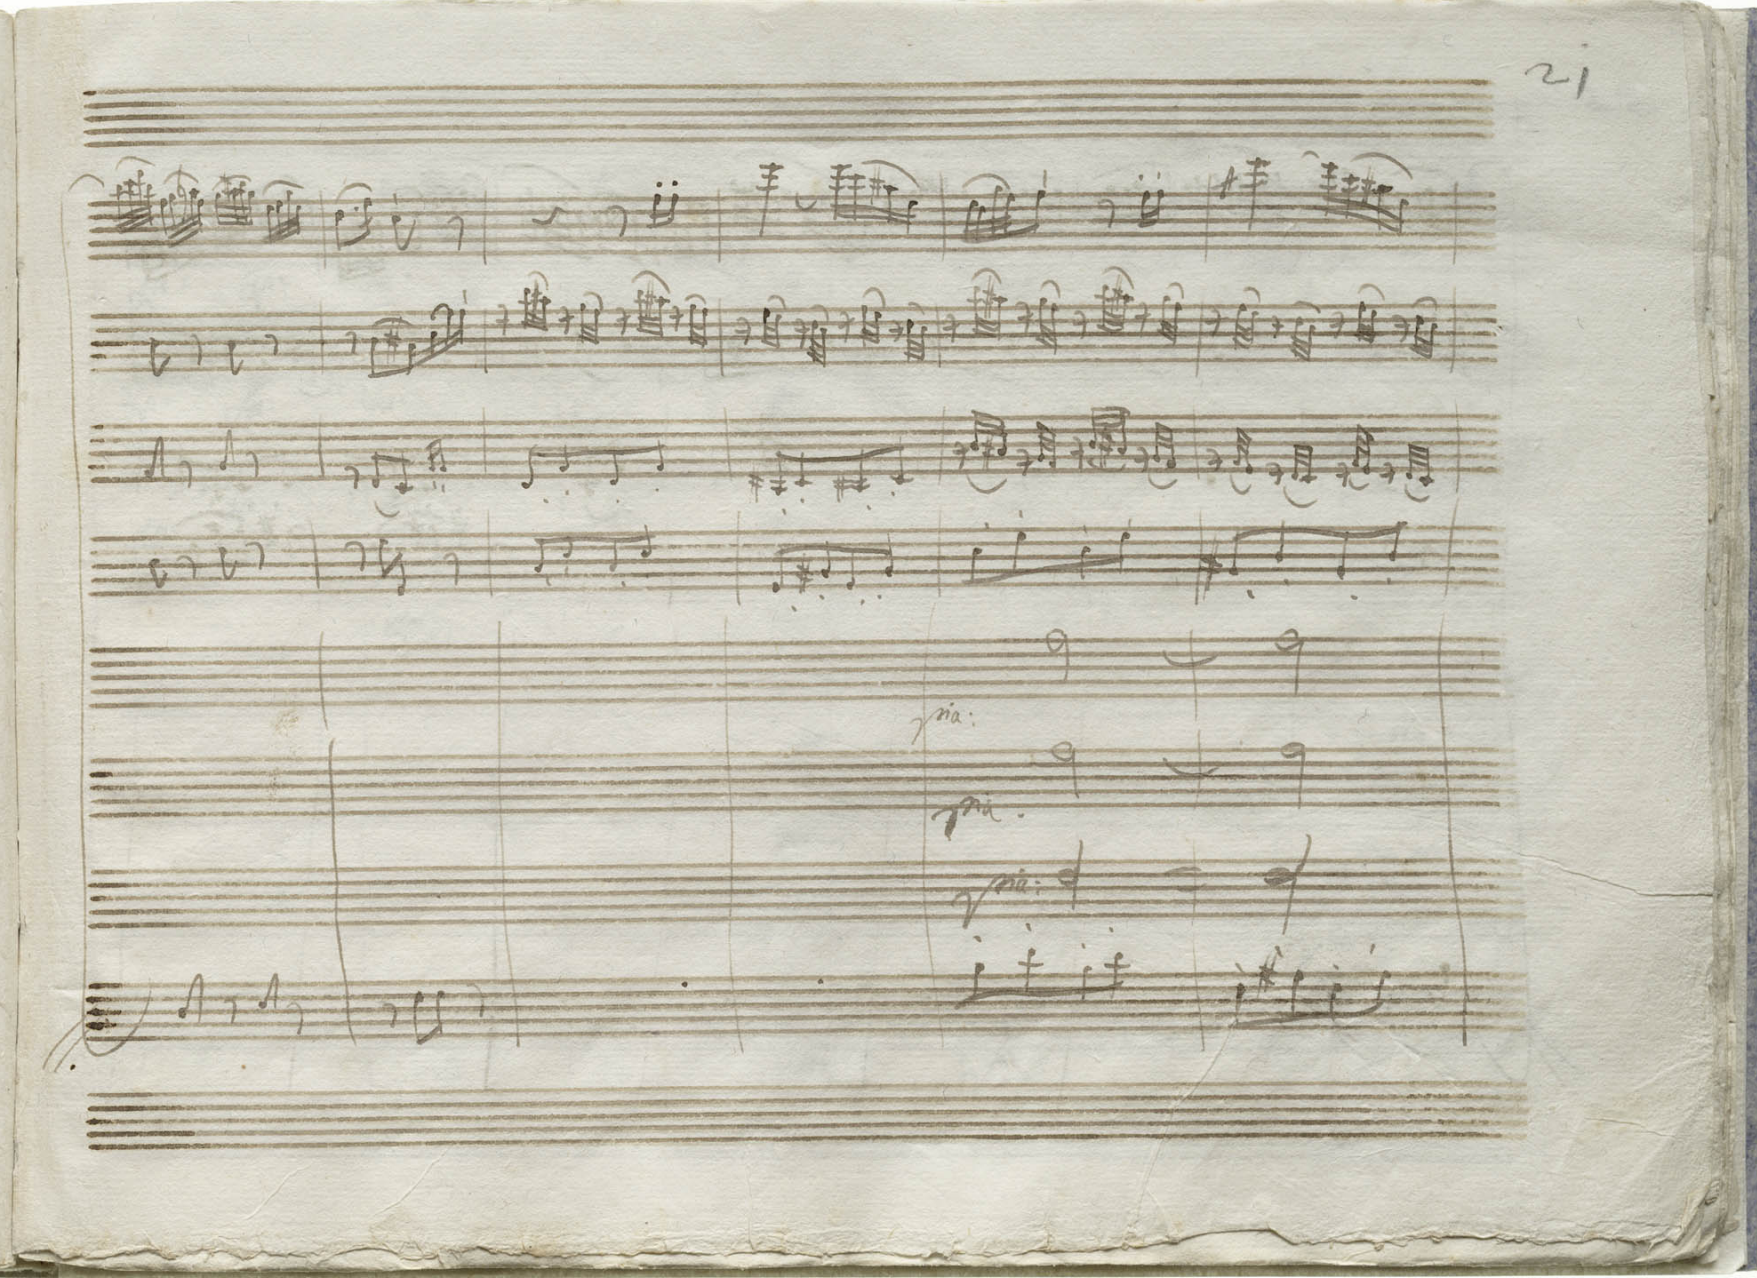 21
pia:
pia.
pia: